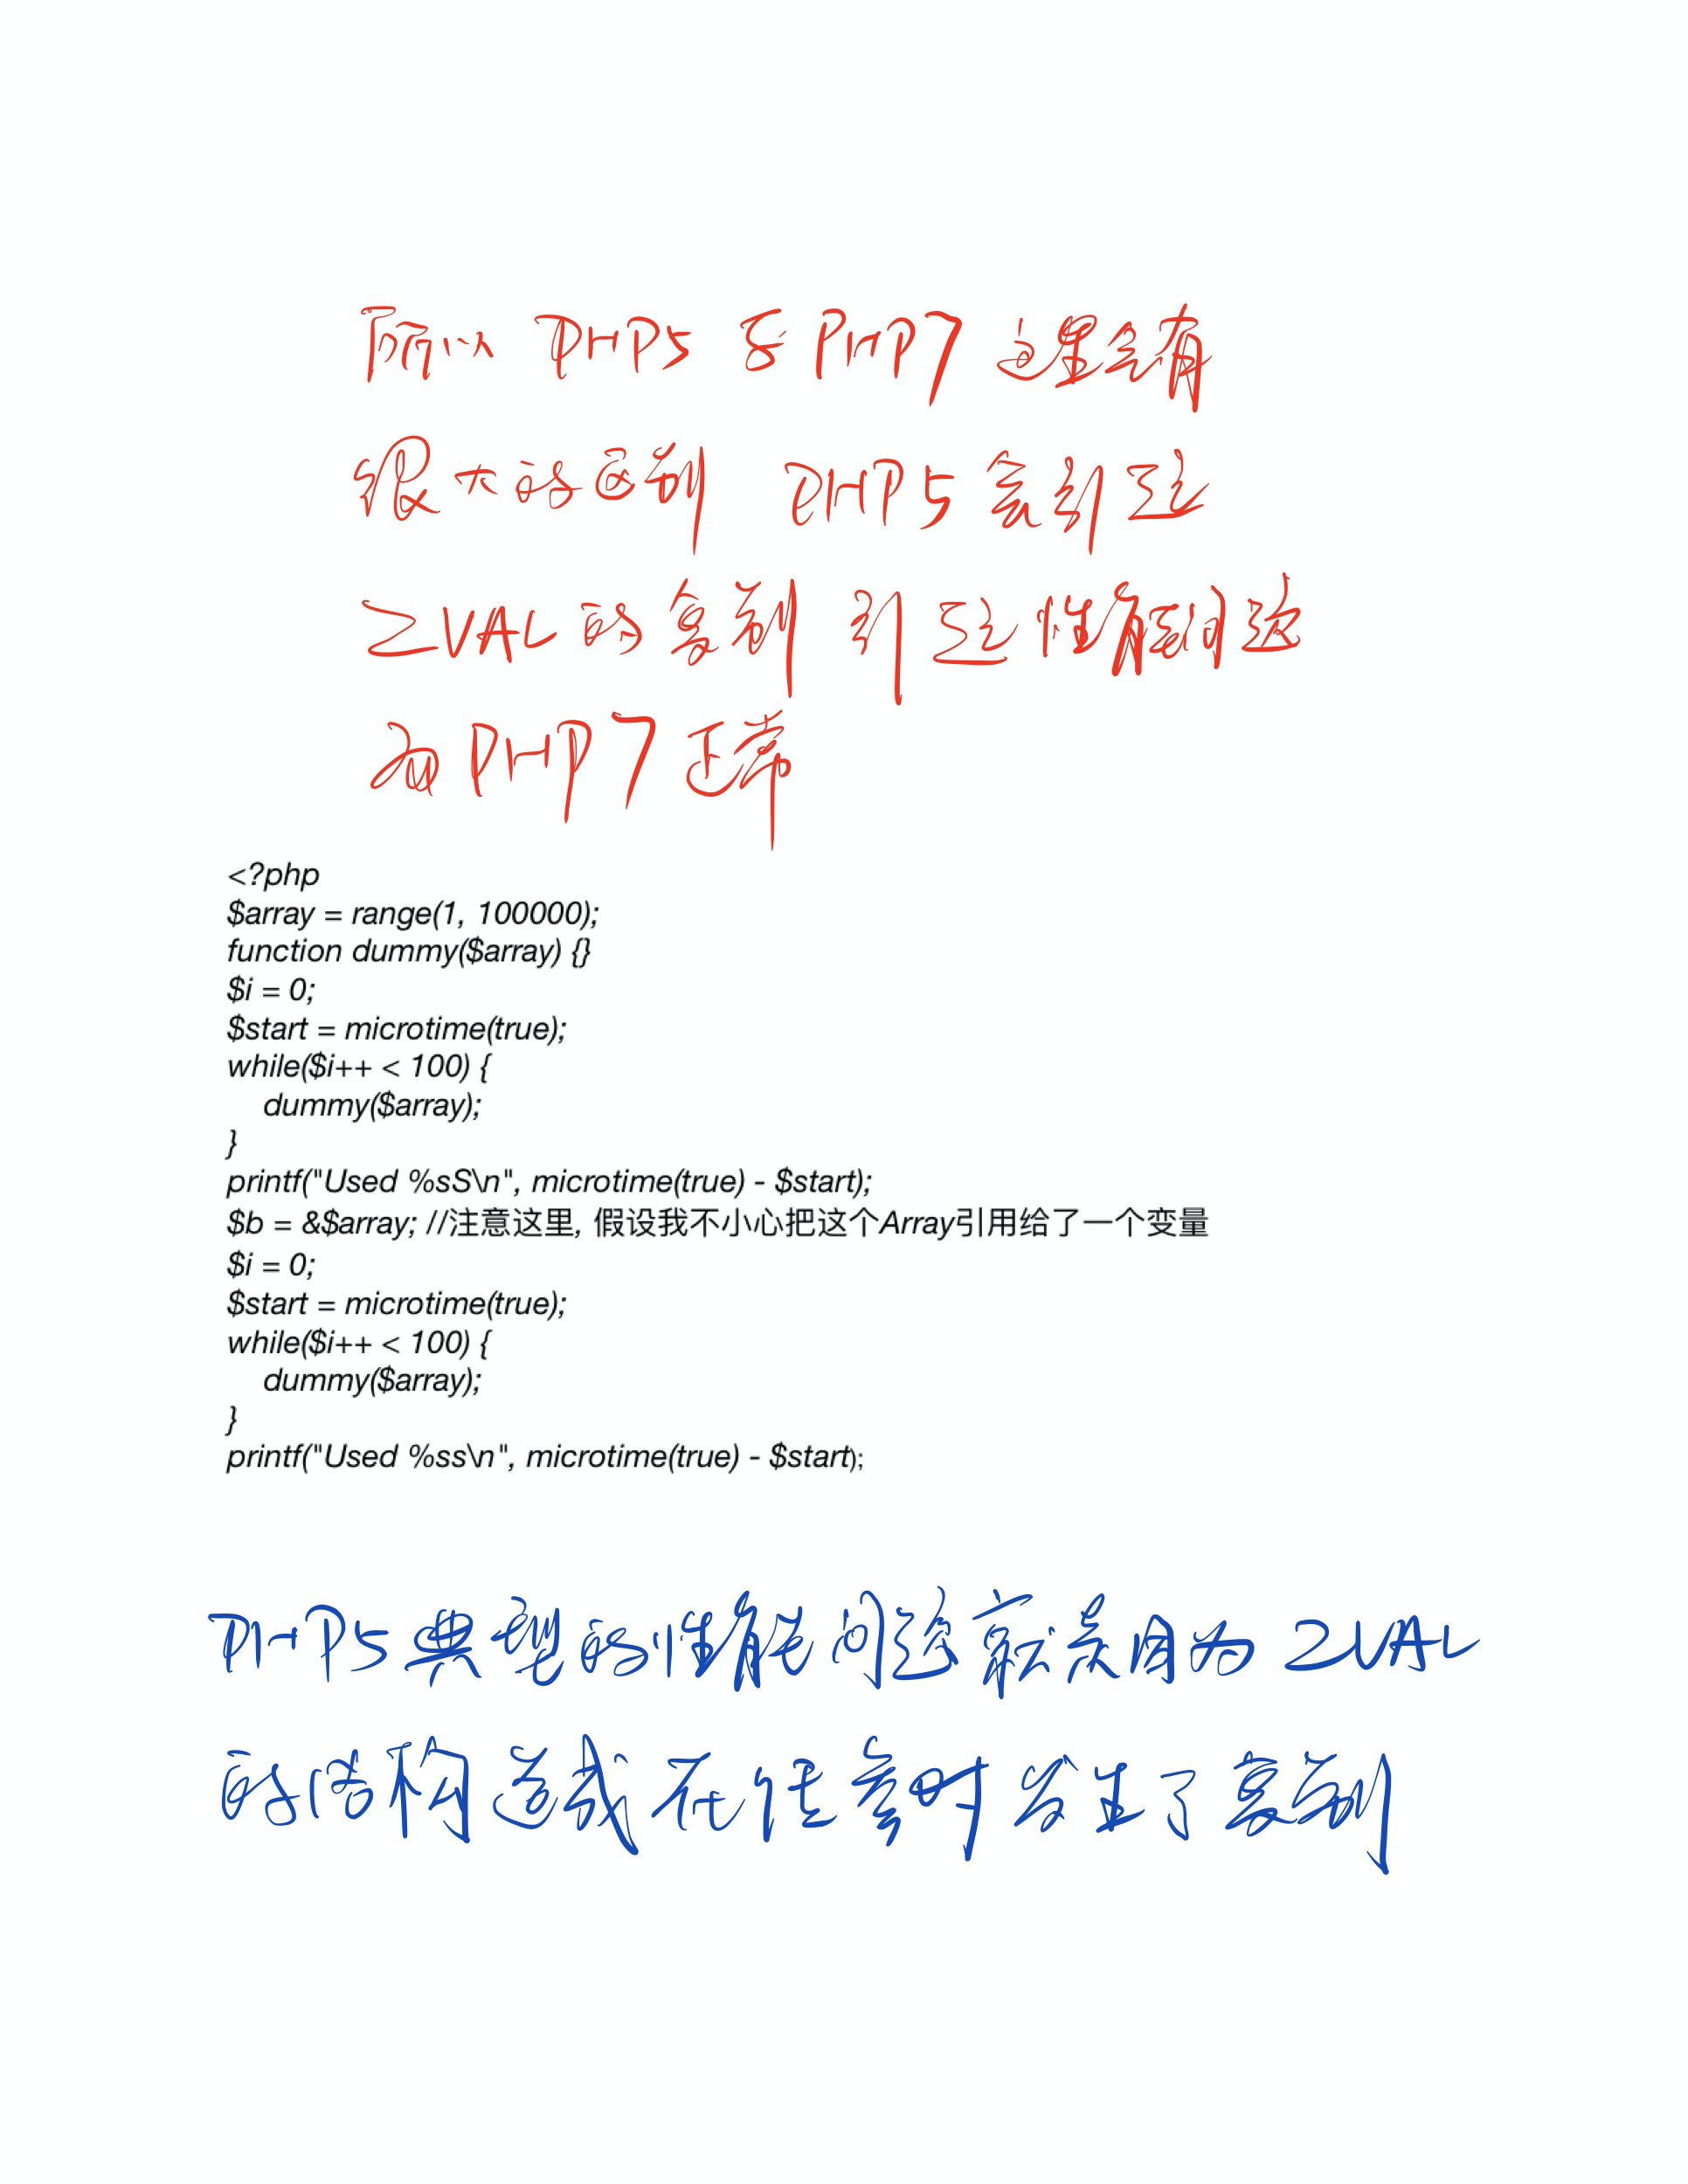 所以 PHP5 和 PHP7 这里会有
很大的区别 PHP5 会引起
ZVAL 的复制 引起性能问题
而 PHP7 正常
<?php
$array = range(1, 100000);
function dummy($array) {}
$i = 0;
$start = microtime(true);
while($i++ < 100) {
    dummy($array);
}
printf("Used %sS\n", microtime(true) - $start);
$b = &$array; //注意这里, 假设我不小心把这个Array引用给了一个变量
$i = 0;
$start = microtime(true);
while($i++ < 100) {
    dummy($array);
}
printf("Used %ss\n", microtime(true) - $start);
PHP5 典型的性能问题就是因为 ZVAL
的结构造成在传参时发生了复制